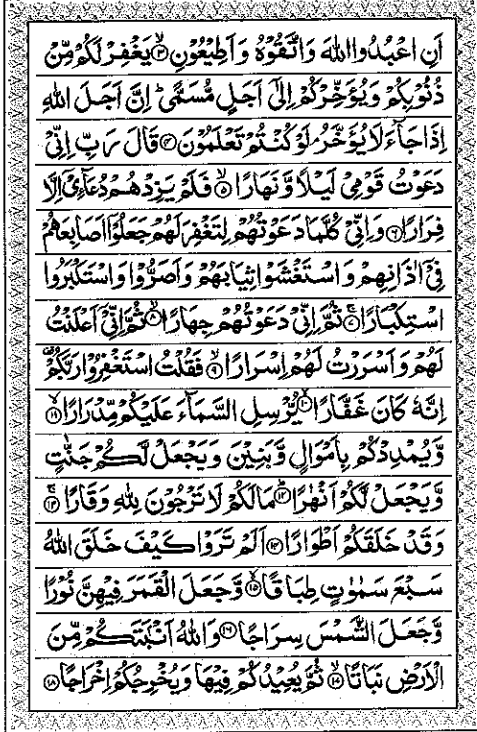 اَنِ اعْبُدُوا اللّٰهَ وَاتَّقُوْهُ وَاَطِيْعُوْنِ ۙ۝۳ يَغْفِرْ لَكُمْ مِّنْ
ذُنُوْبِكُمْ وَيُؤَخِّرْكُمْ اِلٰۤى اَجَلٍ مُّسَمًّى ؕ اِنَّ اَجَلَ اللّٰهِ
اِذَا جَآءَ لَا يُؤَخَّرُ ۘ لَوْ كُنْتُمْ تَعْلَمُوْنَ ۝۴ قَالَ رَبِّ اِنِّيْ
دَعَوْتُ قَوْمِيْ لَيْلًا وَّنَهَارًا ۙ۝۵ فَلَمْ يَزِدْهُمْ دُعَآءِيْۤ اِلَّا
فِرَارًا ۝۶ وَاِنِّيْ كُلَّمَا دَعَوْتُهُمْ لِتَغْفِرَ لَهُمْ جَعَلُوْۤا اَصَابِعَهُمْ
فِيْۤ اٰذَانِهِمْ وَاسْتَغْشَوْا ثِيَابَهُمْ وَاَصَرُّوْا وَاسْتَكْبَرُوا
اسْتِكْبَارًا ۚ۝۷ ثُمَّ اِنِّيْ دَعَوْتُهُمْ جِهَارًا ۙ۝۸ ثُمَّ اِنِّيْۤ اَعْلَنْتُ
لَهُمْ وَاَسْرَرْتُ لَهُمْ اِسْرَارًا ۙ۝۹ فَقُلْتُ اسْتَغْفِرُوْا رَبَّكُمْ ؕ
اِنَّهٗ كَانَ غَفَّارًا ۙ۝۱۰ يُّرْسِلِ السَّمَآءَ عَلَيْكُمْ مِّدْرَارًا ۙ۝۱۱
وَّيُمْدِدْكُمْ بِاَمْوَالٍ وَّبَنِيْنَ وَيَجْعَلْ لَّكُمْ جَنّٰتٍ
وَّيَجْعَلْ لَّكُمْ اَنْهٰرًا ؕ۝۱۲ مَا لَكُمْ لَا تَرْجُوْنَ لِلّٰهِ وَقَارًا ۚ۝۱۳
وَقَدْ خَلَقَكُمْ اَطْوَارًا ۝۱۴ اَلَمْ تَرَوْا كَيْفَ خَلَقَ اللّٰهُ
سَبْعَ سَمٰوٰتٍ طِبَاقًا ۙ۝۱۵ وَّجَعَلَ الْقَمَرَ فِيْهِنَّ نُوْرًا
وَّجَعَلَ الشَّمْسَ سِرَاجًا ۝۱۶ وَاللّٰهُ اَنْۢبَتَكُمْ مِّنَ
الْاَرْضِ نَبَاتًا ۙ۝۱۷ ثُمَّ يُعِيْدُكُمْ فِيْهَا وَيُخْرِجُكُمْ اِخْرَاجًا ۝۱۸